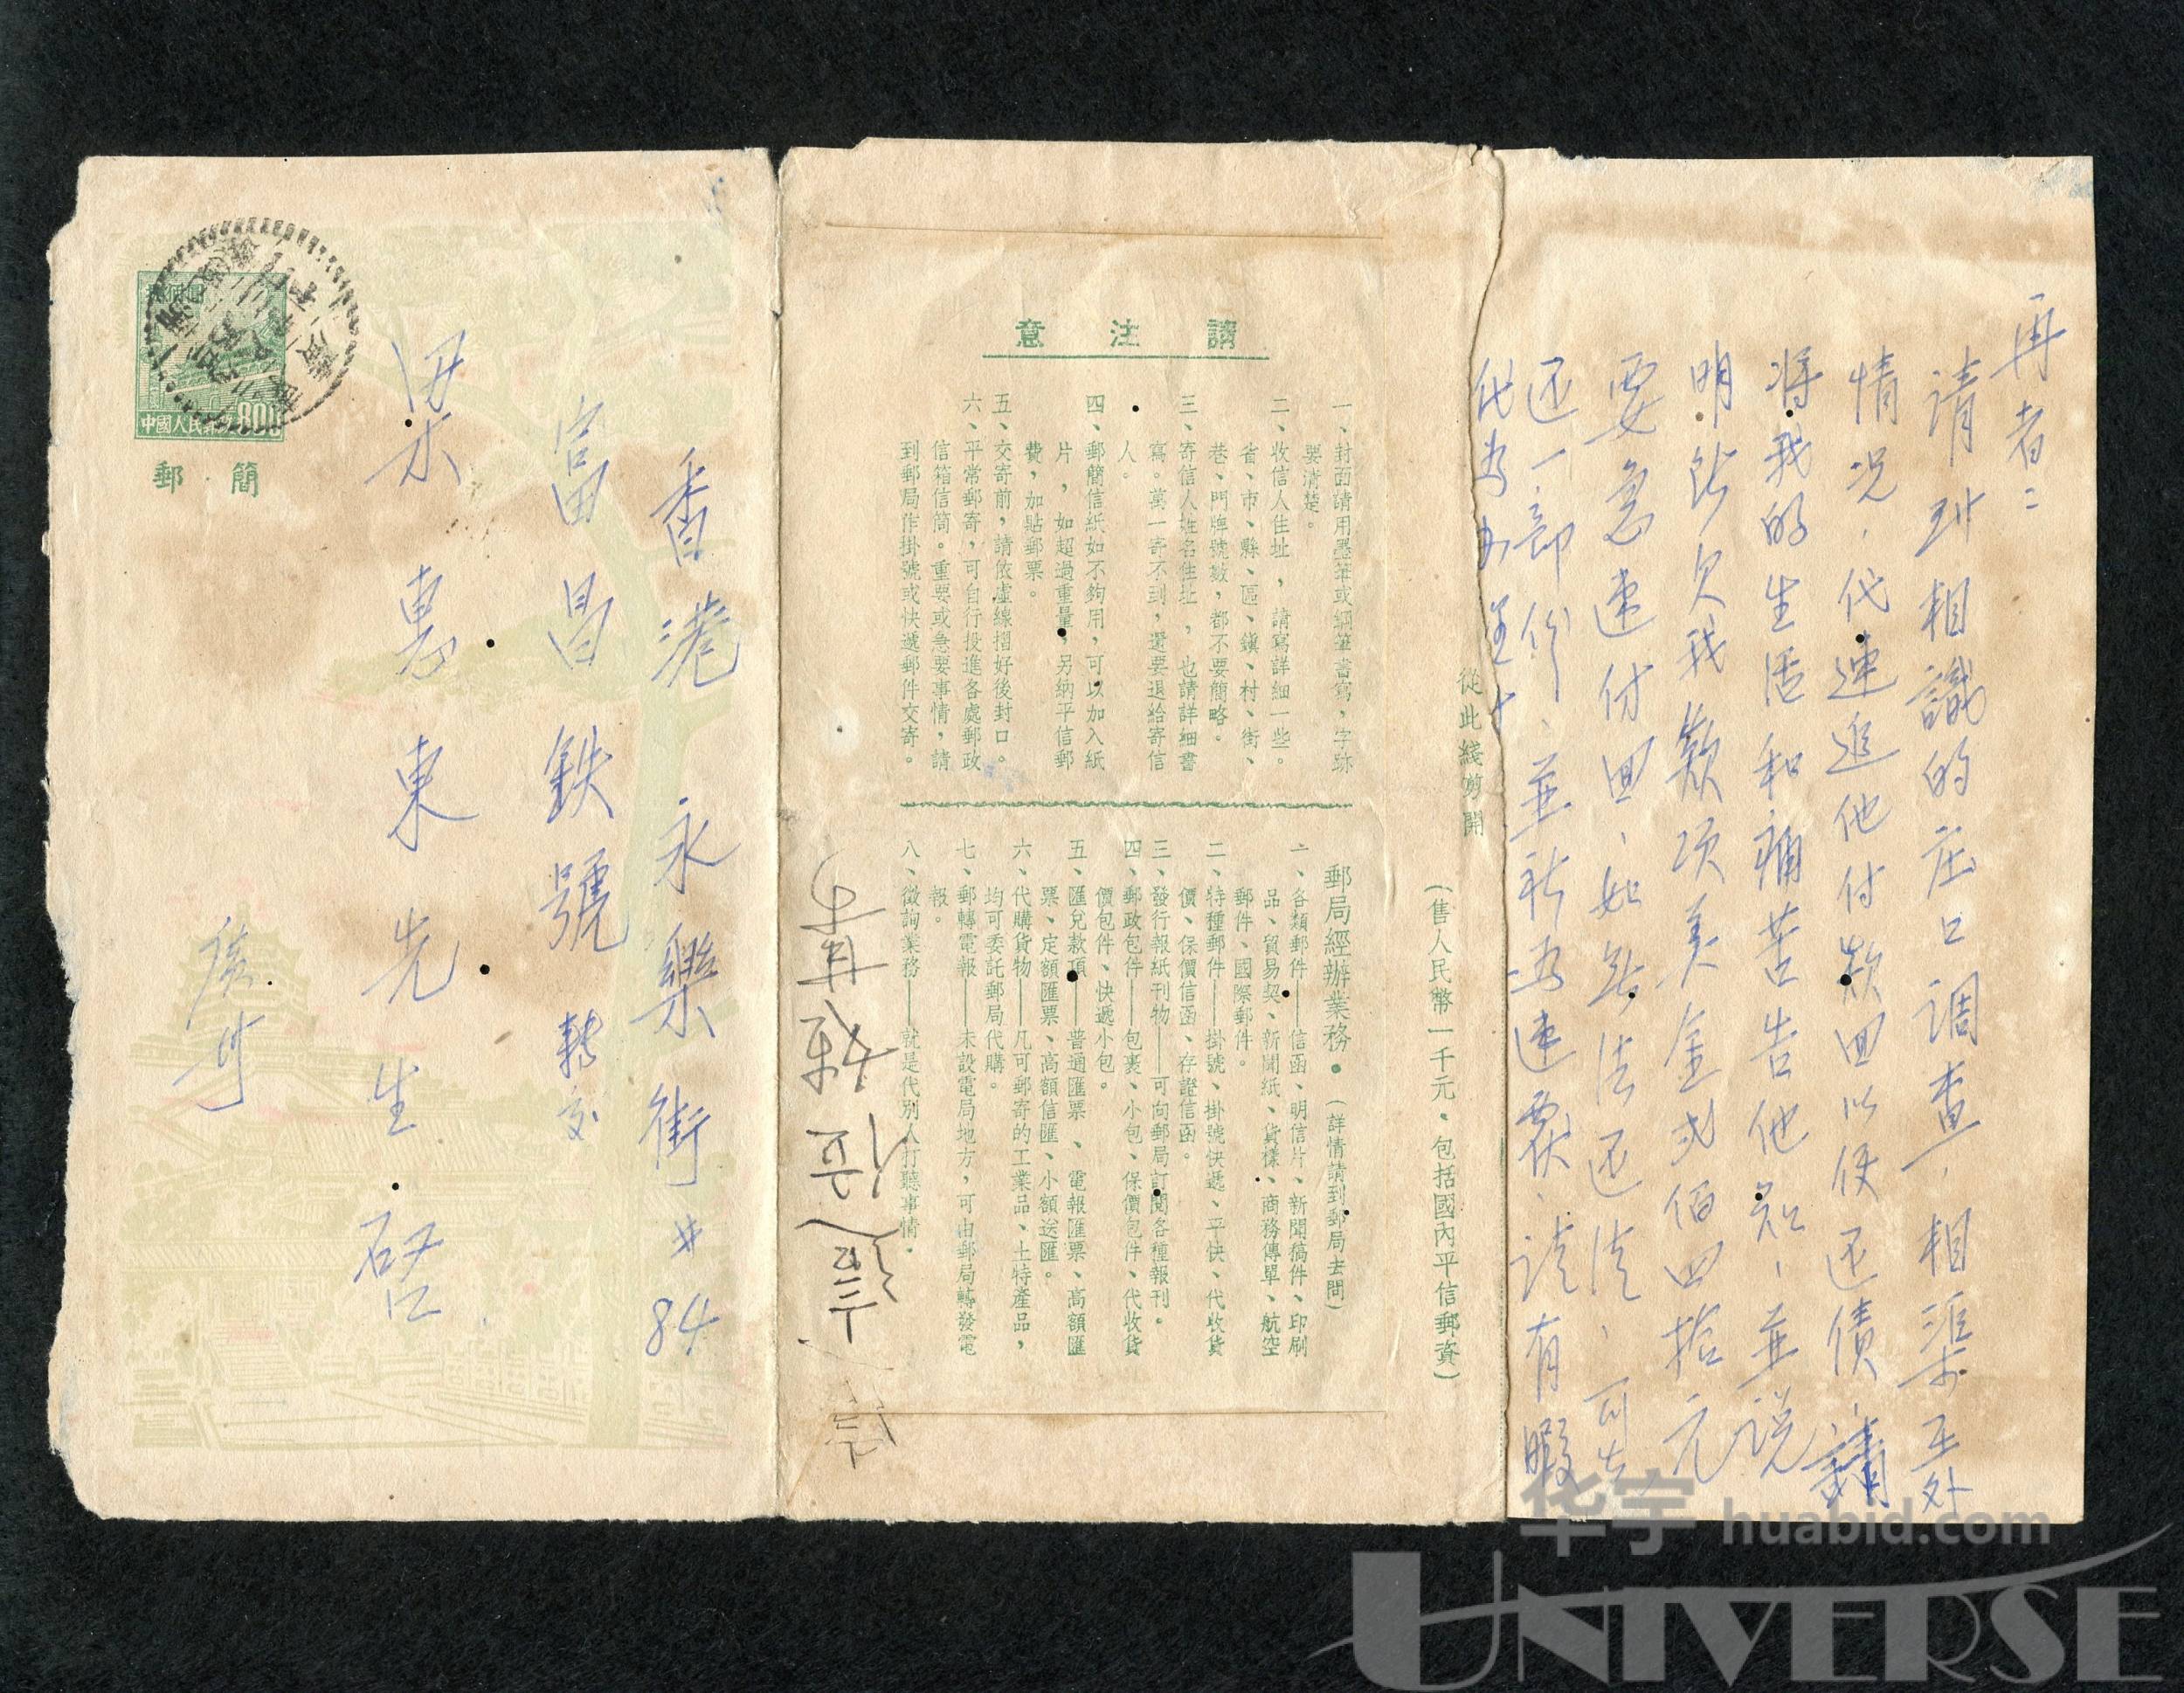 再者：
請到相識的庄口調查，相渠在外
情況，代連追他付款回以便还债，請
将我的生活和痛苦告他知，並説
明所欠我欵项美金弍佰四拾元
要急速付回，如無法还清，可先
还一部份，並祈為速覆，請有暇
代為
從此綫剪開
（售人民幣一千元·包括國內平信郵資）
請注意
一、封面請用墨筆或鋼筆書寫，字跡
要清楚。
二、收信人住址，請寫詳細一些。
省、市、縣、區、鎮、村、街、
巷、門牌號數，都不要簡略。
三、寄信人姓名住址，也請詳細書
寫。萬一寄不到，還要退給寄信
人。
四、郵簡信紙如不夠用，可以加入紙
片，如超過重量，另納平信郵
費，加貼郵票。
五、交寄前，請依虛線摺好後封口。
六、平常郵寄，可自行投進各處郵政
信箱信筒。重要或急要事情，請
到郵局作掛號或快遞郵件交寄。
郵局經辦業務。（詳情請到郵局去問）
一、各類郵件——信函、明信片、新聞稿件、印刷
品、貿易契、新聞紙、貨樣、商務傳單、航空
郵件、國際郵件。
二、特種郵件——掛號、掛號快遞、平快、代收貨
價、保價信函、存證信函。
三、發行報紙刊物——可向郵局訂閱各種報刊。
四、郵政包件——包裹、小包、保價包件、代收貨
價包件、快遞小包。
五、匯兌款項——普通匯票、電報匯票、高額匯
票、定額匯票、高額信匯、小額送匯。
六、代購貨物——凡可郵寄的工業品、土特產品，
均可委託郵局代購。
七、郵轉電報——未設電局地方，可由郵局轉發電
報。
八、徵詢業務——就是代別人打聽事情。
香港永樂街#84
富昌鉄號轉交
梁惠東先生啓
中國人民郵政800
郵簡
华宇 huabid.com
UNIVERSE